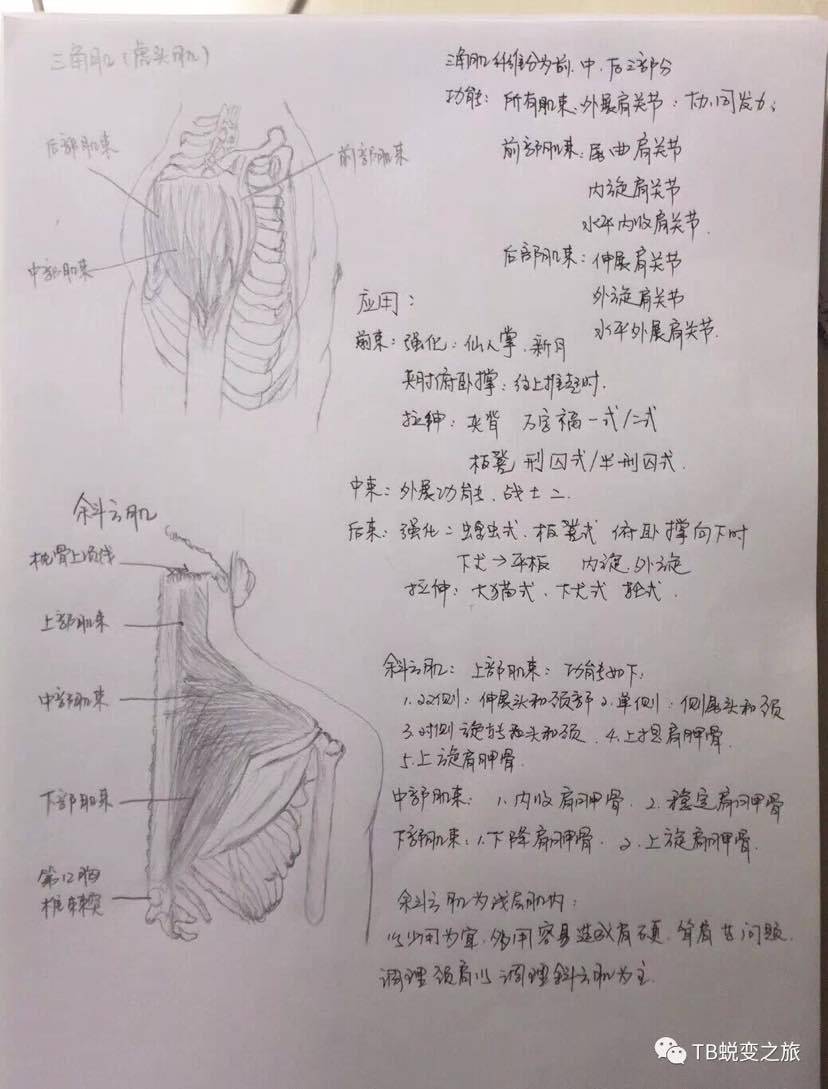 三角肌(虎头肌)
后部肌束
前部肌束
中部肌束
三角肌纤维分为前.中.后三部分
功能: 所有肌束:外展肩关节:协同发力;
前部肌束:屈曲肩关节
内旋肩关节
水平内收肩关节.
后部肌束:伸展肩关节
外旋肩关节
水平外展肩关节.
应用:
前束:强化:仙人掌.新月
夹肘俯卧撑:往上推起时.
拉伸:夹背 万字福一式/二式
板凳 刑囚式/半刑囚式.
中束:外展功能.战士二.
后束:强化:蝗虫式.板凳式 俯卧撑向下时
下犬→平板 内旋.外旋
拉伸:大猫式.下犬式 轮式.
斜方肌
枕骨上项线
上部肌束
中部肌束
下部肌束
第12胸
椎棘突
斜方肌:上部肌束:功能如下:
1.双侧:伸展头和颈部 2.单侧:侧屈头和颈
3.对侧旋转头和颈.4.上提肩胛骨.
5.上旋肩胛骨.
中部肌束:1.内收肩胛骨.2.稳定肩胛骨
下部肌束:1.下降肩胛骨.2.上旋肩胛骨.
斜方肌为浅层肌肉:
以少用为宜.多用容易造成 耸肩 问题.
调理颈肩以调理斜方肌为主.
TB蜕变之旅